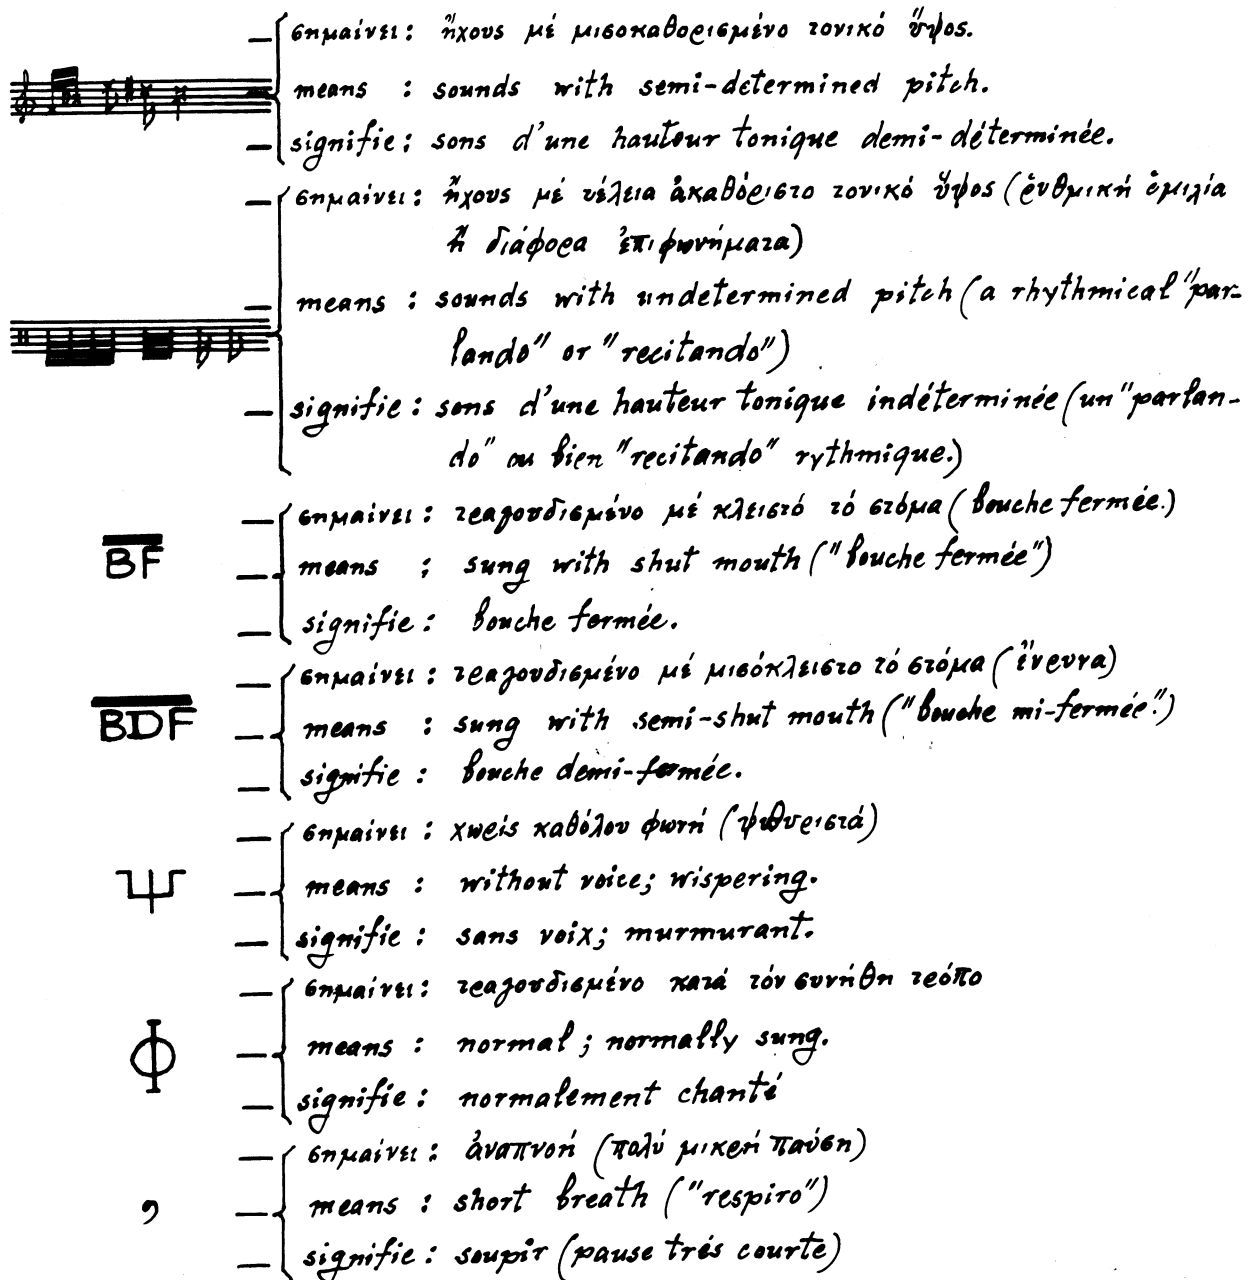 σημαίνει: ἤχους μέ μισοκαθορισμένο τονικό ὕψος.
means : sounds with semi-determined pitch.
signifie: sons d'une hauteur tonique demi-déterminée.
σημαίνει: ἤχους μέ τέλεια ἀκαθόριστο τονικό ὕψος (ῥυθμική ὁμιλία
ἤ διάφορα ἐπιφωνήματα)
means : sounds with undetermined pitch (a rhythmical "par-
lando" or "recitando")
signifie: sons d'une hauteur tonique indéterminée (un "parlan-
do" ou bien "recitando" rythmique.)
σημαίνει: τραγουδισμένο μέ κλειστό τό στόμα (bouche fermée.)
BF
means : sung with shut mouth ("bouche fermée")
signifie: bouche fermée.
σημαίνει: τραγουδισμένο μέ μισόκλειστο τό στόμα (ἔνρυνα)
BDF
means : sung with semi-shut mouth ("bouche mi-fermée".)
signifie: bouche demi-fermée.
σημαίνει: χωρίς καθόλου φωνή (ψιθυριστά)
Ψ
means : without voice; wispering.
signifie: sans voix; murmurant.
σημαίνει: τραγουδισμένο κατά τόν συνήθη τρόπο
Φ
means : normal; normally sung.
signifie: normalement chanté
σημαίνει: ἀναπνοή (πολύ μικρή παύση)
,
means : short breath ("respiro")
signifie: soupir (pause trés courte)